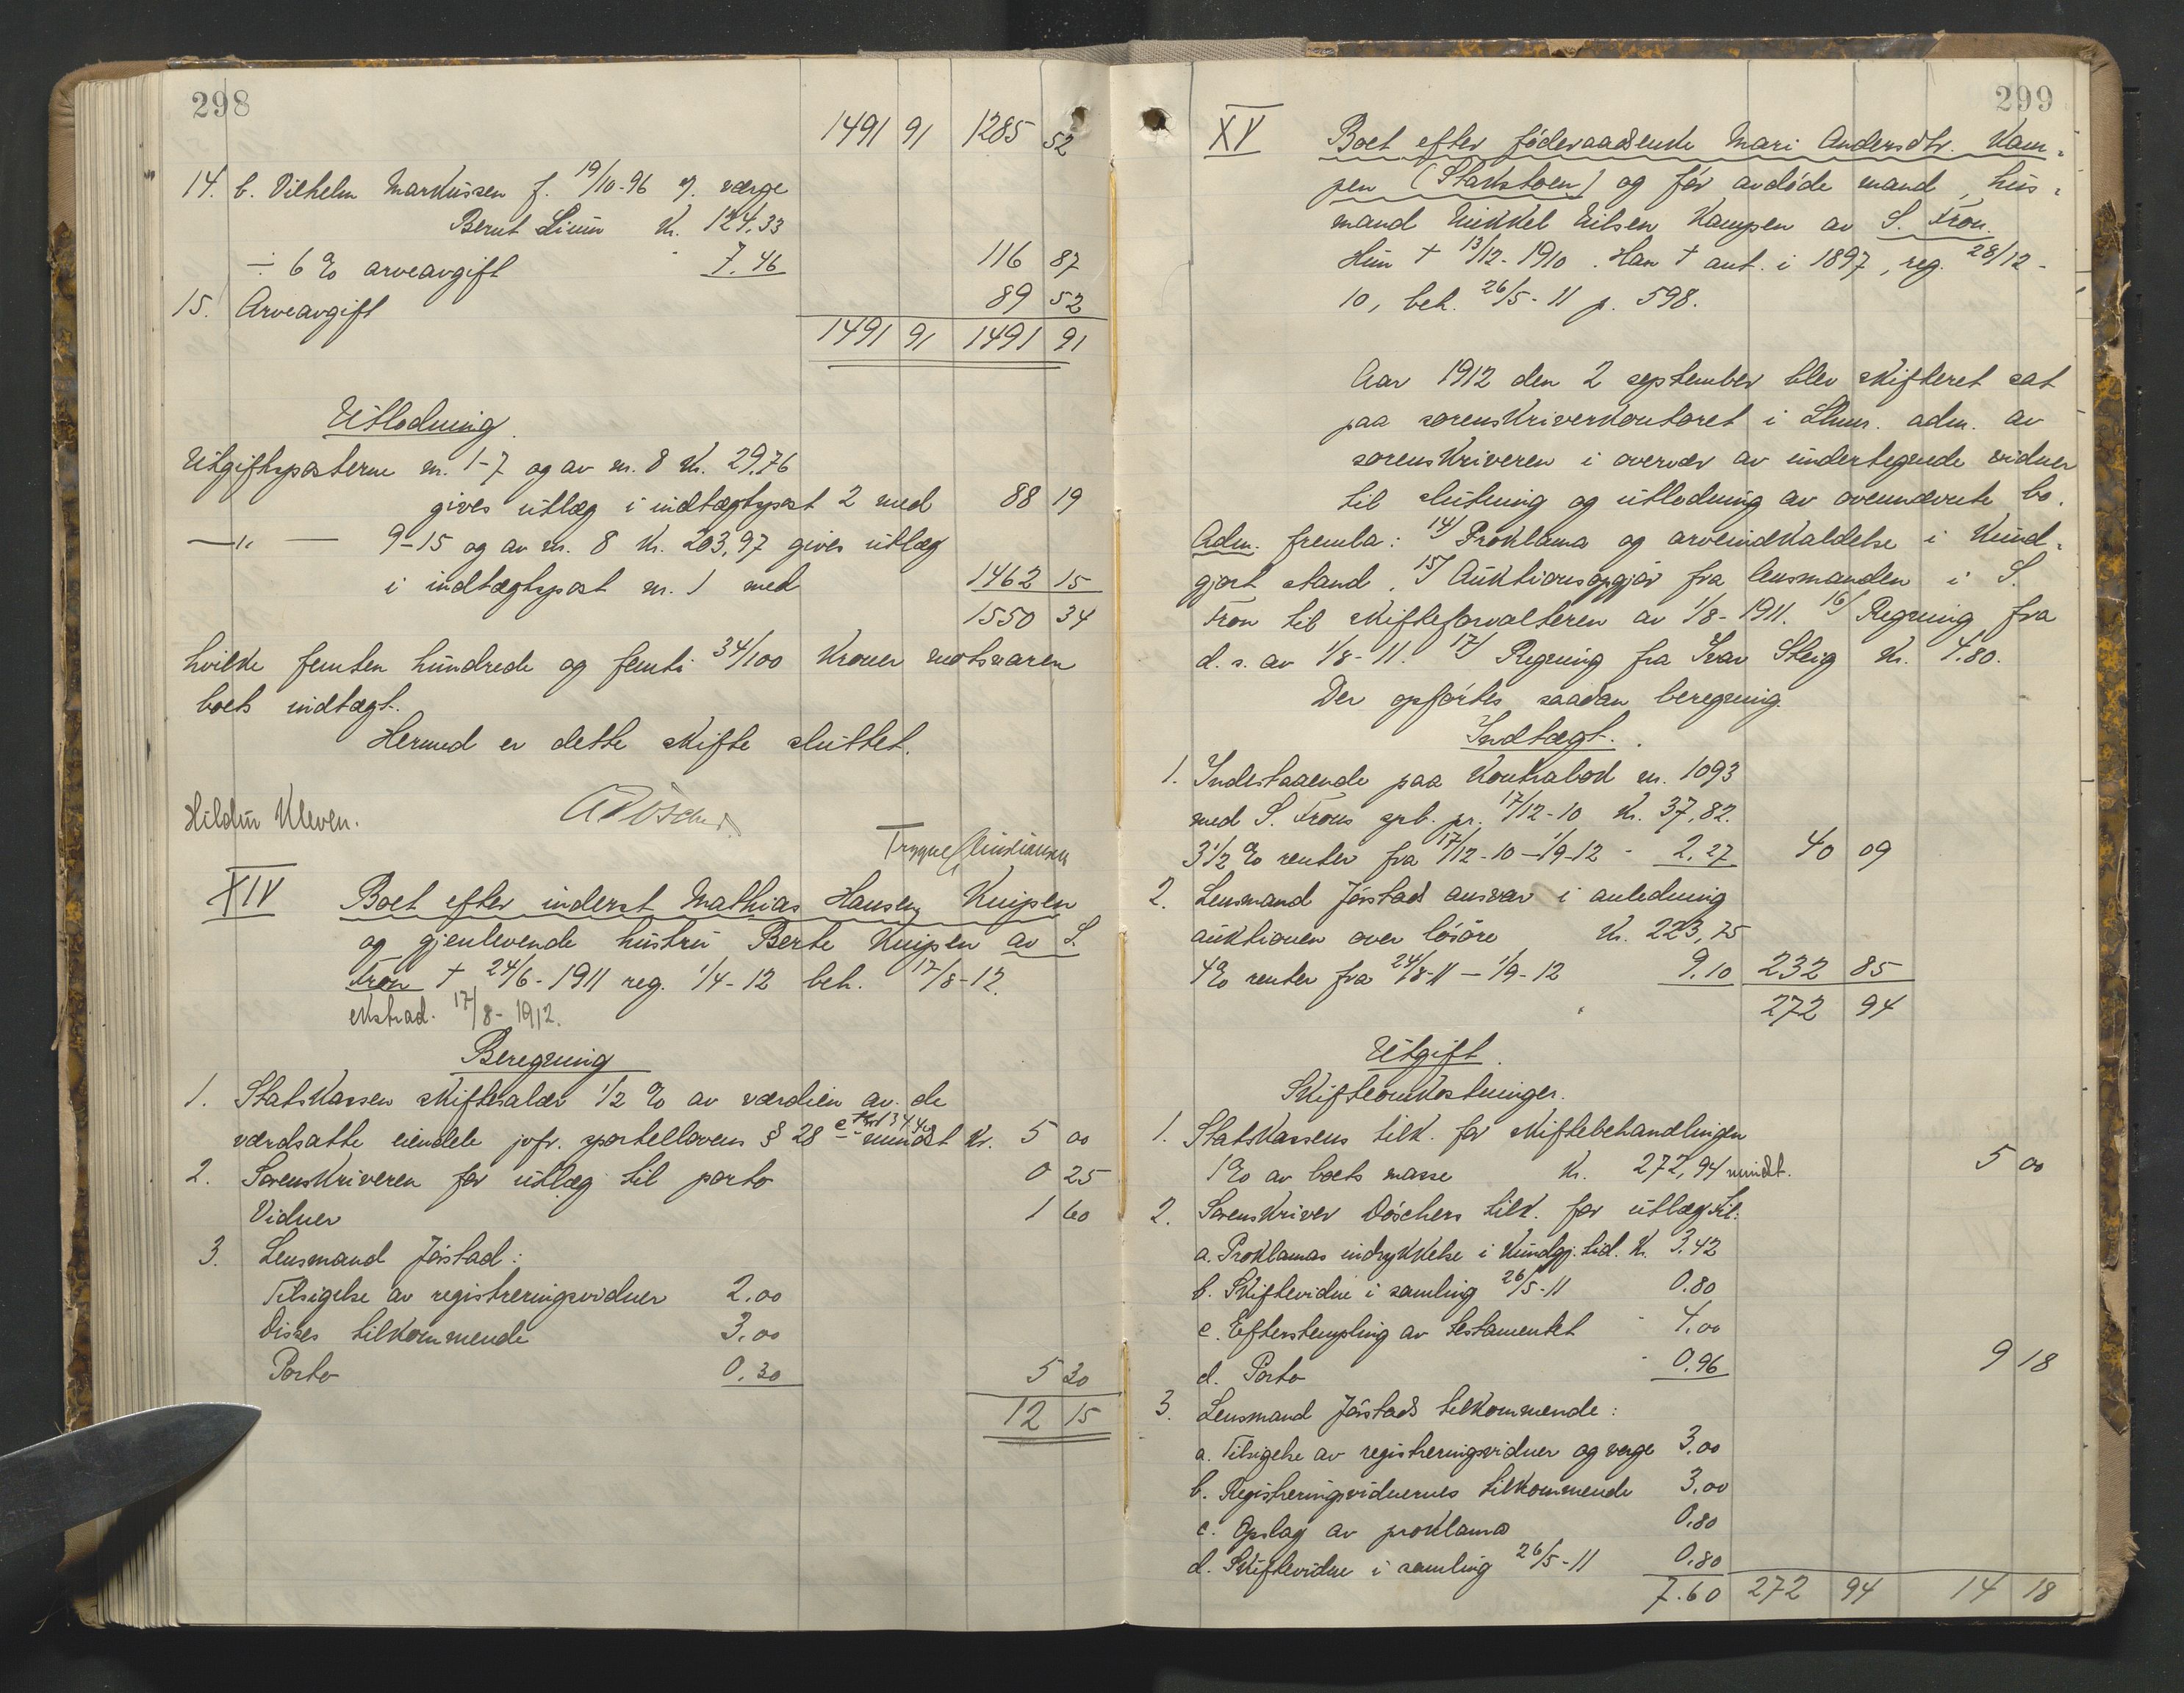 298
1491 91 1285 52
14. b. Vilhelm Markussen f. 19/10-96 v. værge
Bernt Lium Kr. 124,33
÷ 6 % arveavgift " 7.46 116 87
15. Arveavgift 89 52
1491 91 1491 91
Utlodning.
Utgiftsposterne nr. 1-7 og av nr. 8 Kr. 29,76
gives utlæg i indtægtspost 2 med 88 19
—"— 9-15 og av nr. 8 Kr. 203,97 gives utlæg
i indtægtspost nr. 1 med 1462 15
1550 34
hvilke femten hundrede og femti 34/100 Kroner motsvarer
boets indtægt.
Hermed er dette skifte sluttet.
Hildur Kleven.
A Døscher
Trygve Christiansen
XIV Boet efter inderst Mathias Hansen Knipen
og gjenlevende hustru Berte Knipen av S.
Fron † 24/6-1911 reg. 1/4-12 beh. 17/8-12.
ekstrad. 17/8-1912.
Beregning
1. Statskassen skiftesalær 1/2 % av værdien av de
værdsatte eiendele jvfr. sportellovens § 28 mindst Kr. 5 00
2. Sorenskriveren for utlæg til porto 0 25
Vidner 1 60
3. Lensmand Jørstad:
Tilsigelse av registreringsvidner 2.00
Disses tilkommende 3.00
Porto 0.30 5 30
12 15
299
XV Boet efter føderaadsenke Mari Andersdtr. Kam-
pen (Stakstoen) og før avdøde mand, hus-
mand Mikkel Nilsen Kampen av S. Fron.
Hun † 13/12-1910. Han † ant. i 1897, reg. 28/12-
10, beh. 26/5-11 p. 598.
Aar 1912 den 2 september blev skifteret sat
paa sorenskriverkontoret i Lhmr. adm. av
sorenskriveren i overvær av undertegnede vidner
til slutning og utlodning av ovennævnte bo.
Adm. fremla: 14/ Proklama og arveindkaldelse i kund-
gjort stand. 15/ Auktionsopgjør fra lensmanden i S.
Fron til skifteforvalteren av 1/8-1911. 16/ Regning fra
d. s. av 1/8-11. 17/ Regning fra Ivar Steig Kr. 4.80.
Der opførtes saadan beregning.
Indtægt.
1. Indestaaende paa Kontrabok nr. 1093
med S. Frons sprb. pr. 17/12-10 Kr. 37,82.
3 1/2 % renter fra 17/12-10 — 1/9-12 " 2.27 40 09
2. Lensmand Jørstad ansvar i anledning
auktionen over løsøre Kr. 223,75
4 % renter fra 24/8-11 — 1/9-12 9.10 232 85
272 94
Utgift.
Skifteomkostninger.
1. Statskassens tilk. for skiftebehandlingen
1 % av boets masse Kr. 272,94 mindst. 5 00
2. Sorenskriver Døschers tilk. for utlæg til:
a. Proklamas indrykkelse i Kundgj. tid. Kr. 3.42
b. Skiftevidne i samling 26/5-11 0.80
c. Efterstempling av testamentet " 4.00
d. Porto " 0.96 9 18
3. Lensmand Jørstads tilkommende:
a. Tilsigelse av registreringsvidner og verge 3.00
b. Registreringsvidnernes tilkommende 3.00
c. Opslag av proklama 0.80
d. Skiftevidne i samling 26/5-11 0.80
7.60 272 94 14 18